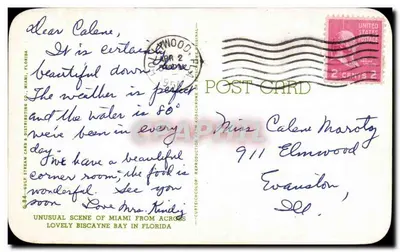 Dear Calene,
It is certainly
beautiful down
The weather is perfect
and the water is 80°
we've been in every
day.
We have a beautiful
corner room; the food is
wonderful. See you
soon Love Mrs. Kindig
UNUSUAL SCENE OF MIAMI FROM ACROSS
LOVELY BISCAYNE BAY IN FLORIDA
HOLLYWOOD
APR 2
POST CARD
UNITED STATES
POSTAGE
2 CENTS 2
Miss Calene Marotz
911 Elmwood
Evanston,
Ill.